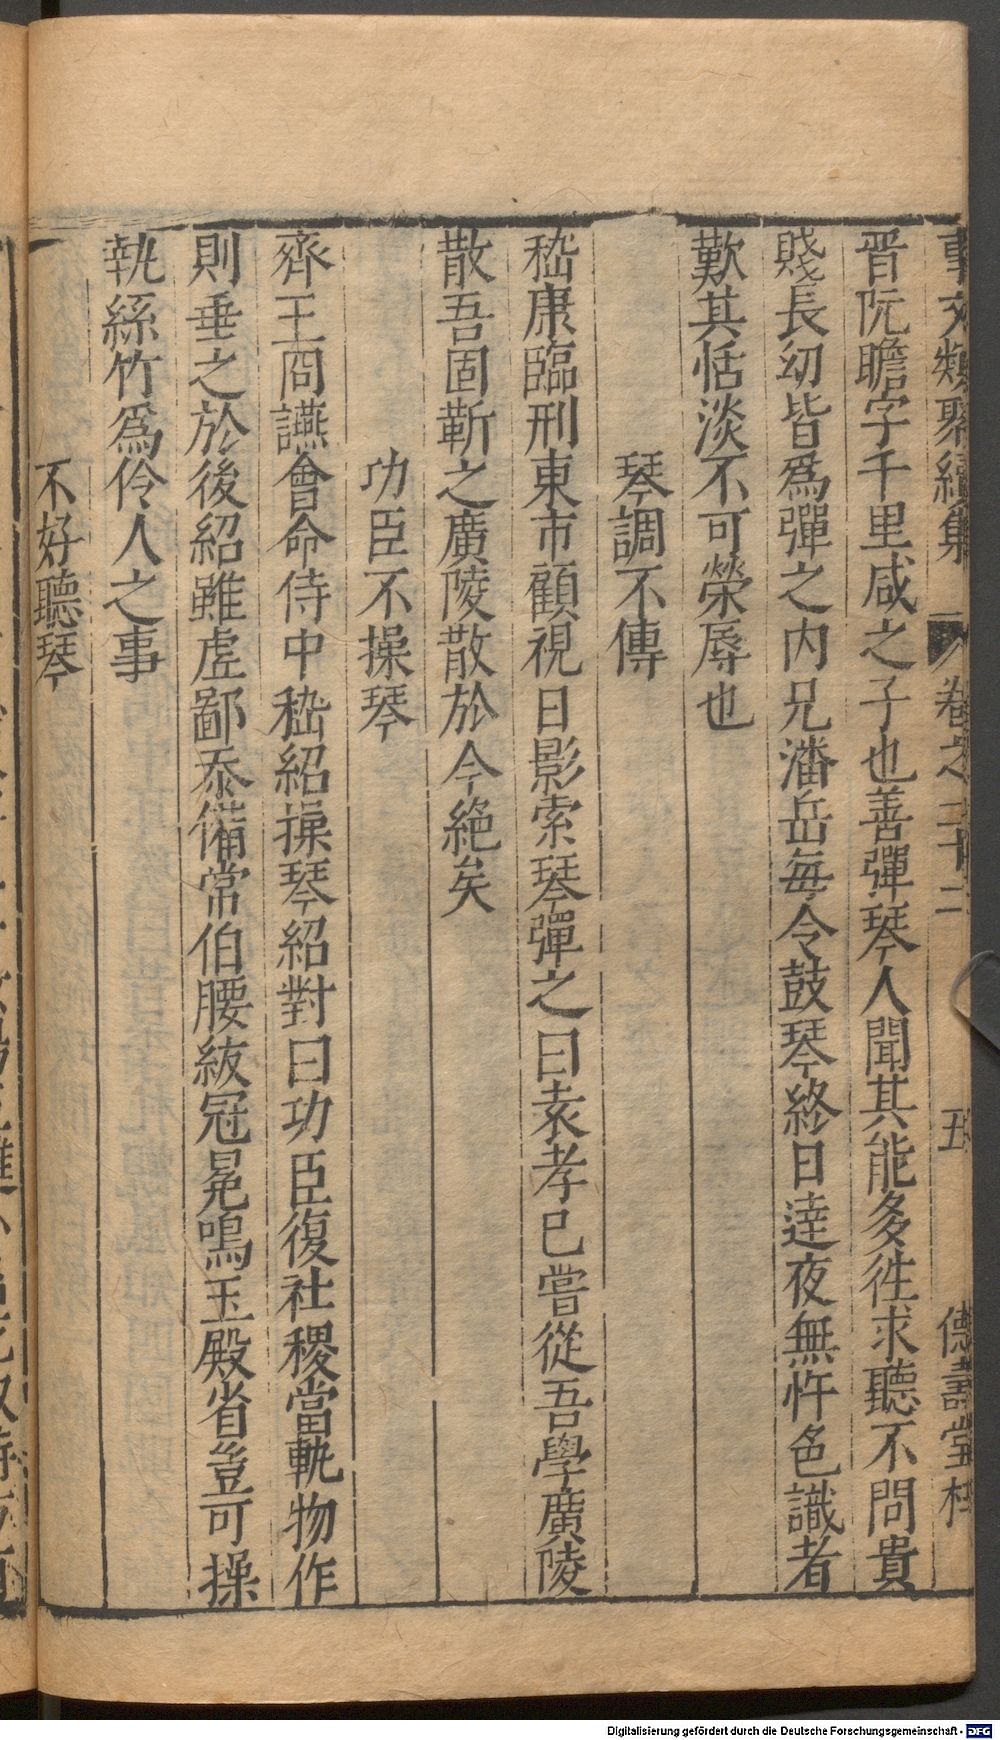 事文類聚續集 卷之二十二 五 德壽堂梓
晋阮瞻字千里咸之子也善彈琴人聞其能多徃求聽不問貴
賤長幼皆爲彈之内兄潘岳每令鼓琴終日逹夜無忤色識者
歎其恬淡不可榮辱也
琴調不傳
嵇康臨刑東市顧視日影索琴彈之曰袁孝己嘗從吾學廣陵
散吾固靳之廣陵散於今絕矣
功臣不操琴
齊王冏讌會命侍中嵇紹操琴紹對曰功臣復社稷當軌物作
則垂之於後紹雖虚鄙忝備常伯腰紱冠冕鳴玉殿省豈可操
執絲竹爲伶人之事
不好聽琴
Digitalisierung gefördert durch die Deutsche Forschungsgemeinschaft - DFG